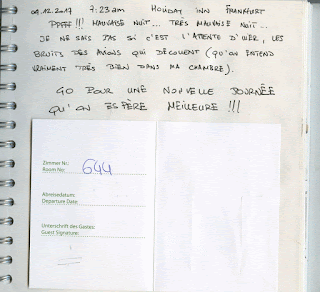 09.12.2017 7:23am HOLIDAY INN FRANKFURT
PPFFF !!! MAUVAISE NUIT... TRÈS MAUVAISE NUIT...
JE NE SAIS PAS SI C'EST L'ATTENTE D'HIER, LES
BRUITS DES AVIONS QUI DÉCOLLENT (QU'ON ENTEND
VRAIMENT TRÈS BIEN DANS MA CHAMBRE).
GO POUR UNE NOUVELLE JOURNÉE
QU'ON ESPÈRE MEILLEURE !!!
Zimmer Nr.:
Room No: 644
Abreisedatum:
Departure Date:
Unterschrift des Gastes:
Guest Signature: